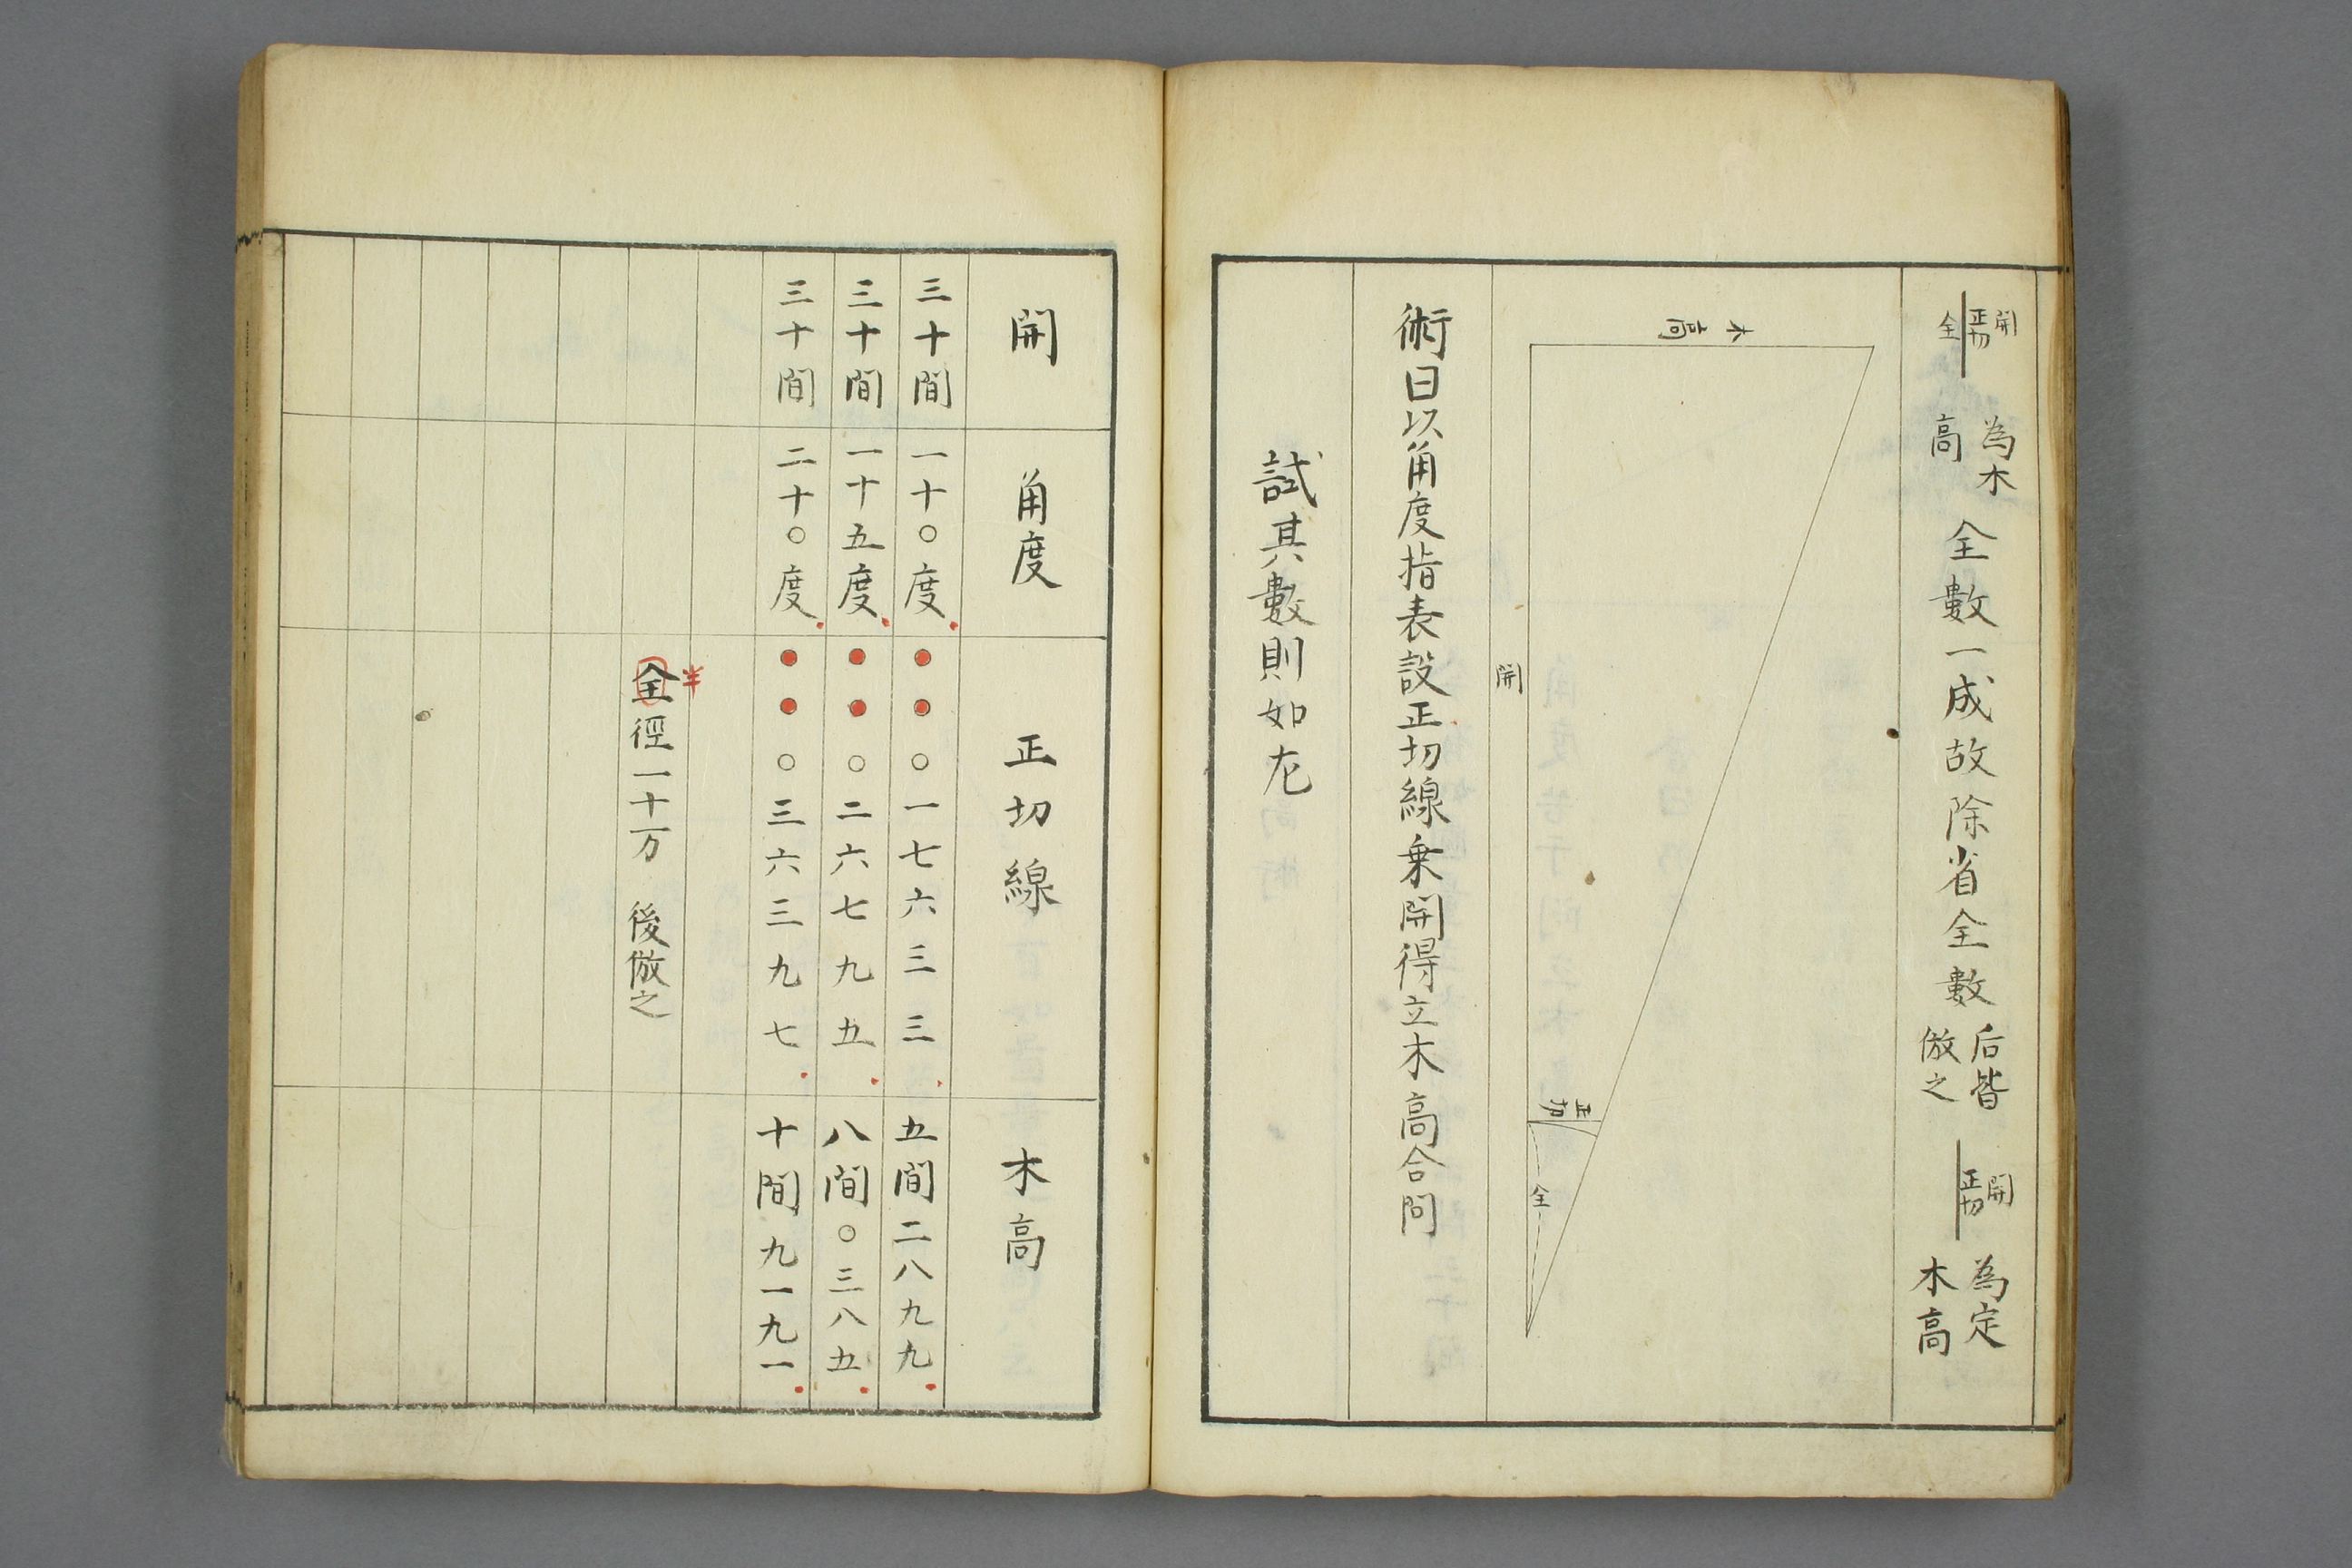 開正切
全
為木
高
全數一成故除省全數
后皆
倣之
開正切
為定
木高
木高
開
正切
全
術曰以角度指表設正切線乗開得立木高合問
試其數則如左
開 角度 正切線 木高
三十間 一十〇度 〇一七六三三 五間二八九九
三十間 一十五度 〇二六七九五 八間〇三八五
三十間 二十〇度 〇三六三九七 十間九一九一
半
全徑一十万 後倣之